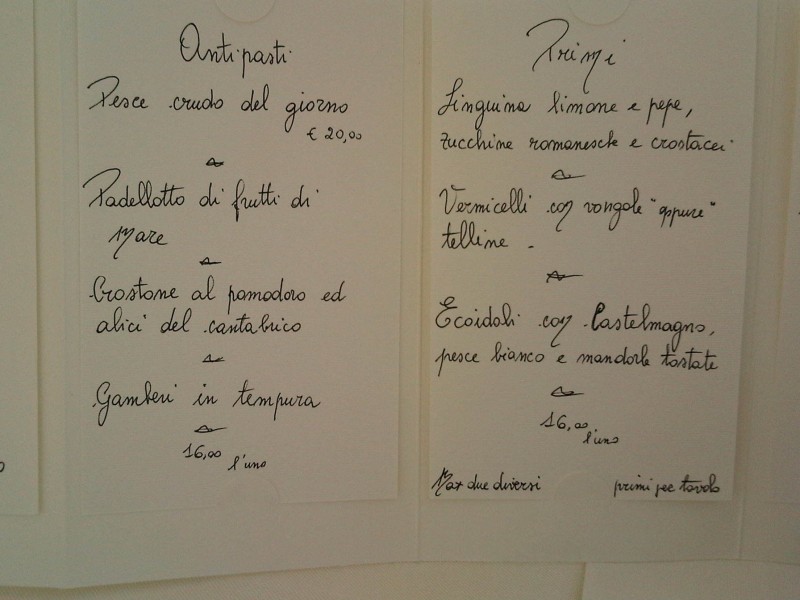 Antipasti
Pesce crudo del giorno
€ 20,00
Padellotto di frutti di
Mare
Crostone al pomodoro ed
alici del cantabrico
Gamberi in tempura
16,00 l'uno
Primi
Linguina limone e pepe,
zucchine romanesche e crostacei
Vermicelli con vongole "oppure"
telline -
con Castelmagno,
pesce bianco e mandorle tostate
16,00 l'uno
Max due diversi primi per tavolo